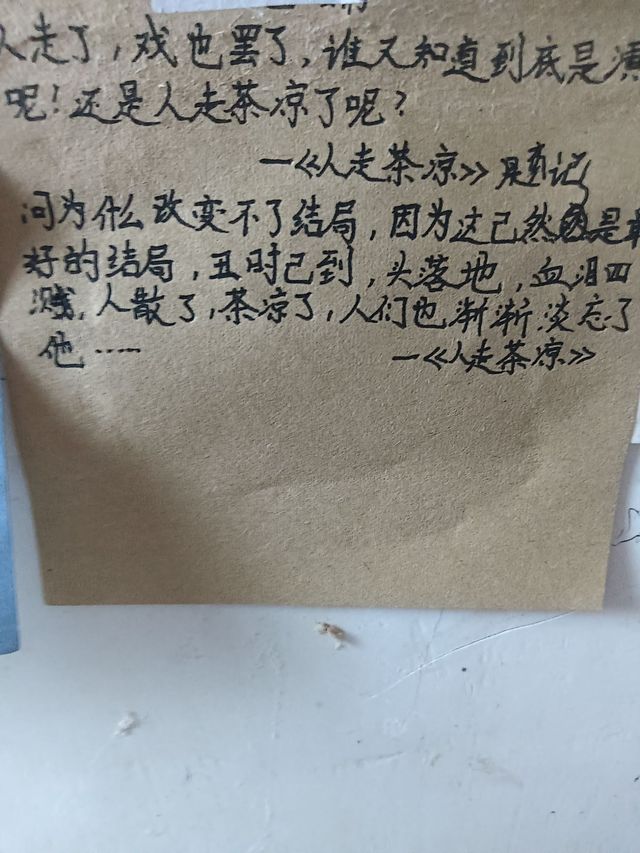 人走了，戏也罢了，谁又知道到底是演
呢！还是人走茶凉了呢？
—《人走茶凉》题记
问为什么改变不了结局，因为这已然是最
好的结局，丑时已到，头落地，血泪四
溅，人散了，茶凉了，人们也渐渐淡忘了
他……
—《人走茶凉》